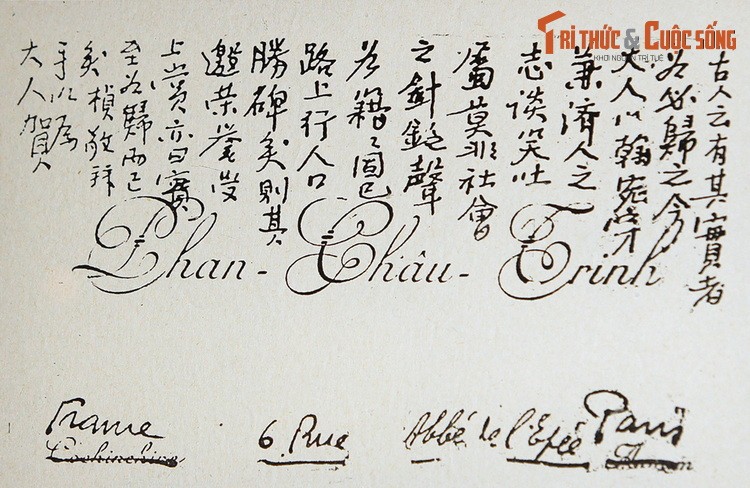 TRI THỨC & CUỘC SỐNG
KHƠI NGUỒN TRI TUỆ
古人云有其實者
名必歸之今
大人以翰宛才
兼濟人之
志談笑吐
屬莫非社會
之針聲
名籍〻固已
路上行人口
勝碑矣則其
邀榮
上賞亦曰實
至名歸而已
矣楨敬拜
手以為
大人賀
Phan-Châu-Trinh
France 6. Rue Abbé de l'Epée Paris
Cochinchine Annam